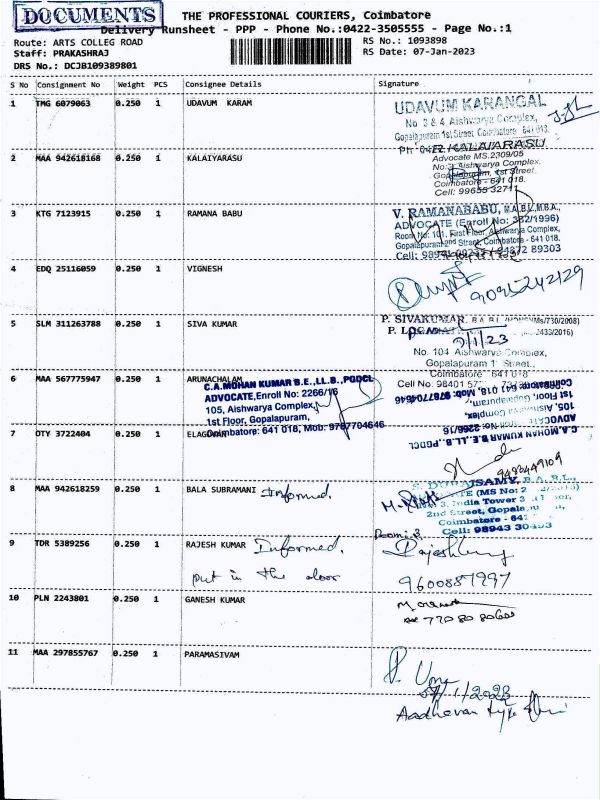 DOCUMENTS
THE PROFESSIONAL COURIERS, Coimbatore
Delivery Runsheet - PPP - Phone No.:0422-3505555 - Page No.:1
Route: ARTS COLLEG ROAD
Staff: PRAKASHRAJ
DRS No.: DCJB109389801
RS No.: 1093898
RS Date: 07-Jan-2023
S No Consignment No Weight PCS Consignee Details Signature
1 TMG 6079063 0.250 1 UDAVUM KARAM
UDAVUM KARANGAL
No 3 & 4, Aishwarya Complex,
Gopalapuram 1st Street Coimbatore 641 018.
2 MAA 942618168 0.250 1 KALAIYARASU
KALAIARASU
Advocate MS.2309/05
Aishwarya Complex,
1st Street
Coimbatore - 641 018.
3 KTG 7123915 0.250 1 RAMANA BABU
V. RAMANABABU, M.A.B.L.M.B.A.,
ADVOCATE (Enroll No: 382/1996)
Room No: 101, First Floor, Aishwarya Complex,
Gopalapuram 2nd Street, Coimbatore - 641 018.
4 EDQ 25116059 0.250 1 VIGNESH
9095242129
5 SLM 311263788 0.250 1 SIVA KUMAR
P. SIVAKUMAR,
No. 104 Aishwarya Complex,
Gopalapuram 1 Street,
Coimbatore 641 018
6 MAA 567775947 0.250 1 ARUNACHALAM
C.A.MOHAN KUMAR B.E.,LL.B.,PGDCL
ADVOCATE,Enroll No: 2266/16
105, Aishwarya Complex,
1st Floor, Gopalapuram,
Coimbatore: 641 018, Mob: 9787704646
C.A.MOHAN KUMAR B.E.,LL.B.,PGDCL
ADVOCATE
105, Aishwarya Complex,
1st Floor, Gopalapuram,
Coimbatore 641 018, Mob: 9787704646
7 OTY 3722404 0.250 1
9493449109
8 MAA 942618259 0.250 1 BALA SUBRAMANI Informed.
S. DURAISAMY, B.A.,B.L.,
India Tower
2nd Street,
Coimbatore -
Cell: 98943
9 TDR 5389256 0.250 1 RAJESH KUMAR Informed.
put in the door
9600887997
10 PLN 2243801 0.250 1 GANESH KUMAR
11 MAA 297855767 0.250 1 PARAMASIVAM
P. Uma
Aadhavan